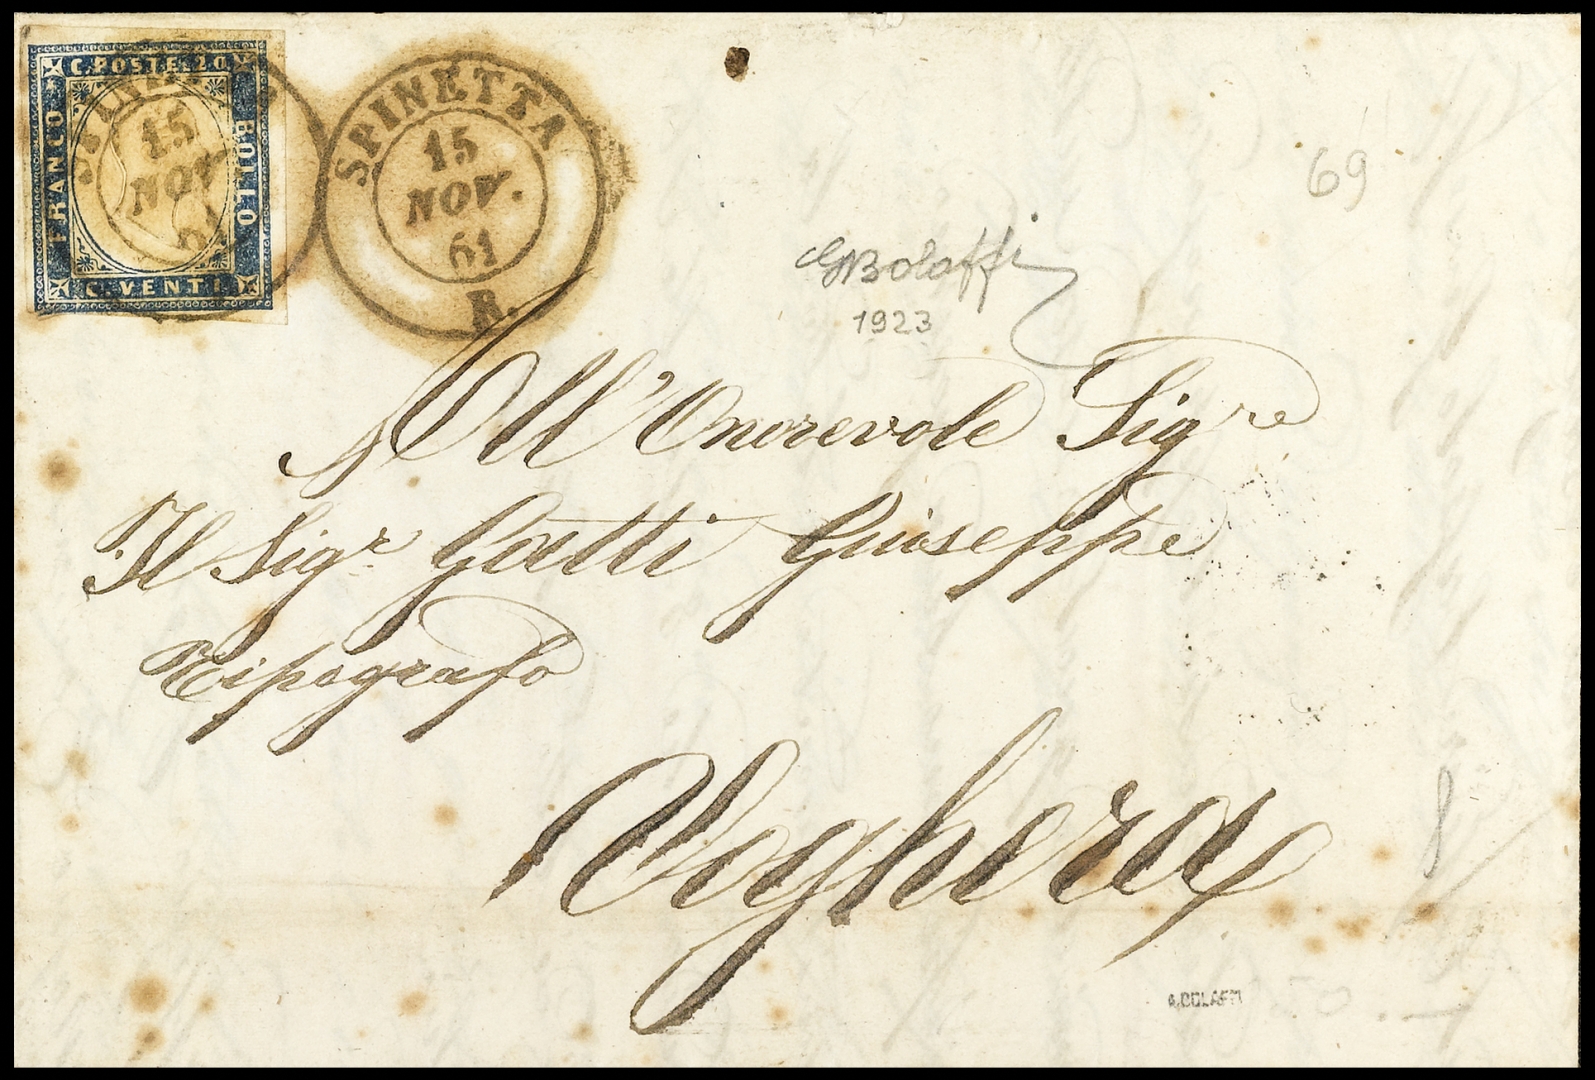 C. POSTE. 20.
FRANCO
BOLLO
C. VENTI.
15
NOV.
61
SPINETTA
15
NOV.
61
R.
69
GBolaffi
1923
All'Onorevole Sigre
Il Sigr. Gatti Giuseppe
Tipografo
Voghera
A.BOLAFFI